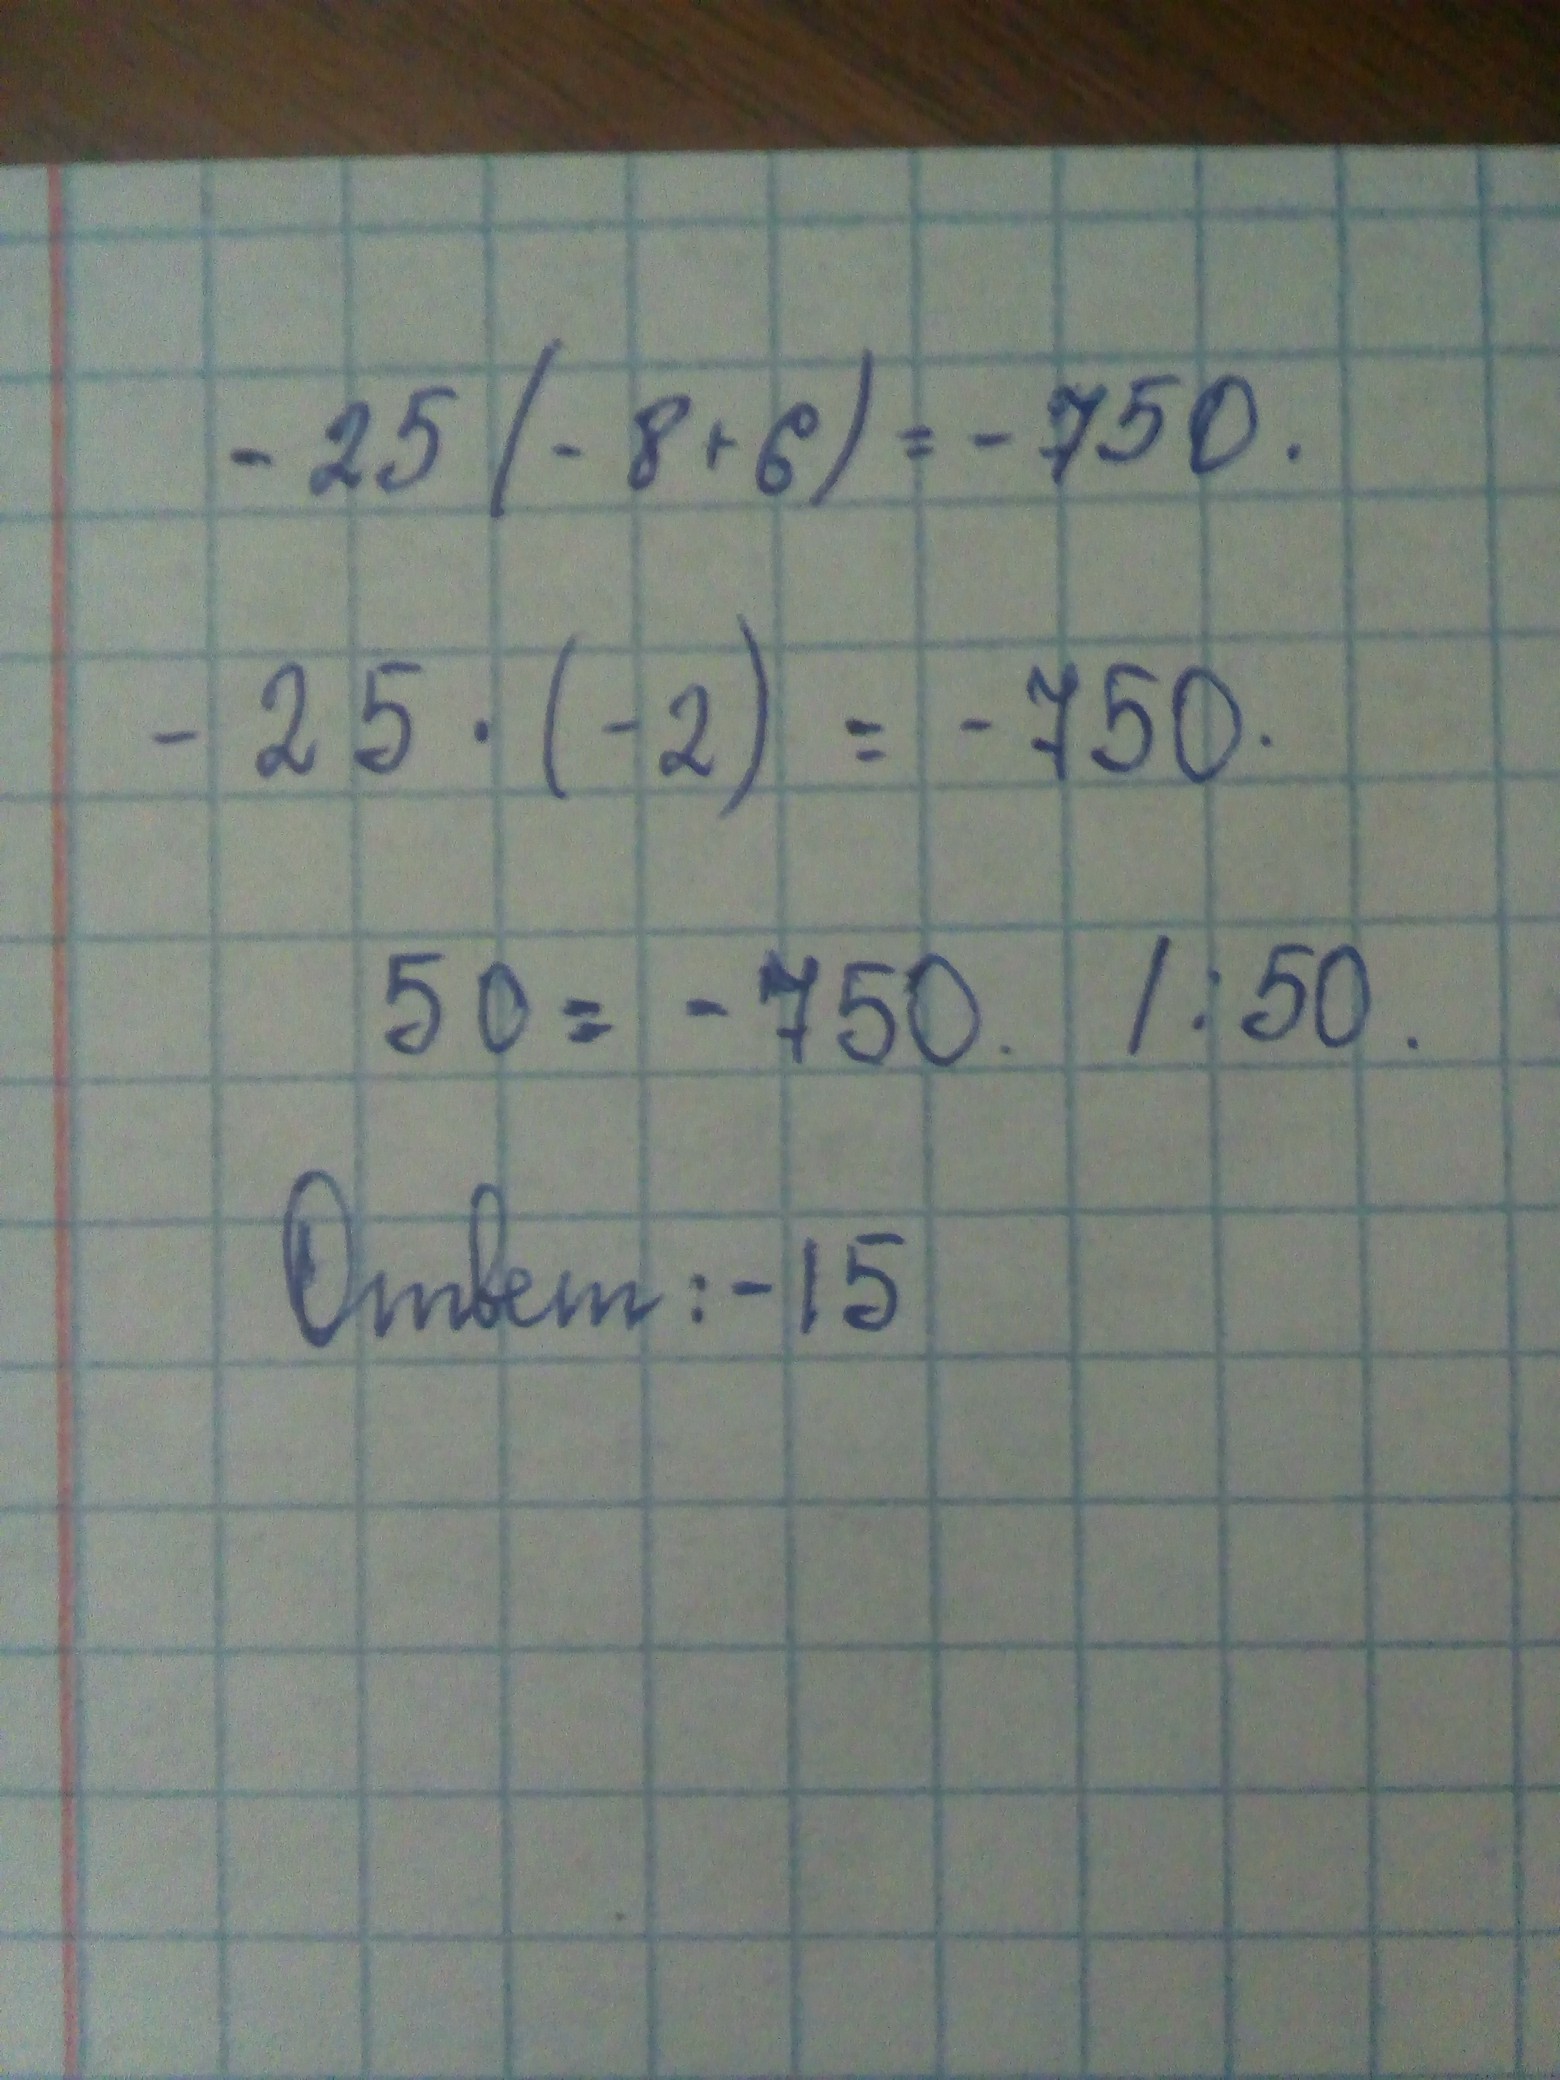 - 25 (- 8 + 6) = - 750.
- 25 · (- 2) = - 750.
50 = - 750. / : 50.
Ответ: - 15